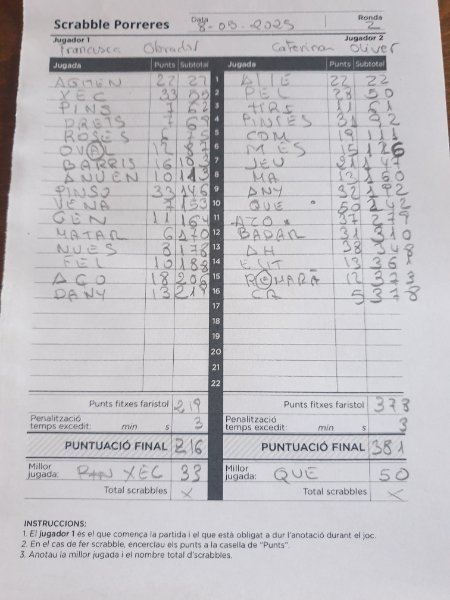 Scrabble Porreres Data 8-09-2025 Ronda 2
Jugador 1 Jugador 2
Francisca Obrador Caterina Oliver
Jugada Punts Subtotal Jugada Punts Subtotal
1 22 22
XEC 33 2 PEL 28 50
PINS 7 62 3 TIRS 11 61
4 PINTES 31 92
ROSES 5 COM 19 111
6 MES 15 126
BARRIS 16 7 JEU 21 147
8 MA 13 160
PINSÀ 33 146 9 ANY 32 192
VENA 7 153 10 QUE 50 242
GEN 11 164 11
MATAR 6 170 12 BADAR 31 310
NUES 8 178 13 AH 38 348
FEL 10 188 14
18 206 15 12 373
DANY 13 219 16 5 378
17
18
19
20
21
22
Punts fitxes faristol 219 Punts fitxes faristol 378
Penalització temps excedit: min s 3 Penalització temps excedit: min s 3
PUNTUACIÓ FINAL 216 PUNTUACIÓ FINAL 381
Millor jugada: XEC 33 Millor jugada: QUE 50
Total scrabbles X Total scrabbles X
INSTRUCCIONS:
1. El jugador 1 és el que comença la partida i el que està obligat a dur l'anotació durant el joc.
2. En el cas de fer scrabble, encercleu els punts a la casella de "Punts".
3. Anotau la millor jugada i el nombre total d'scrabbles.